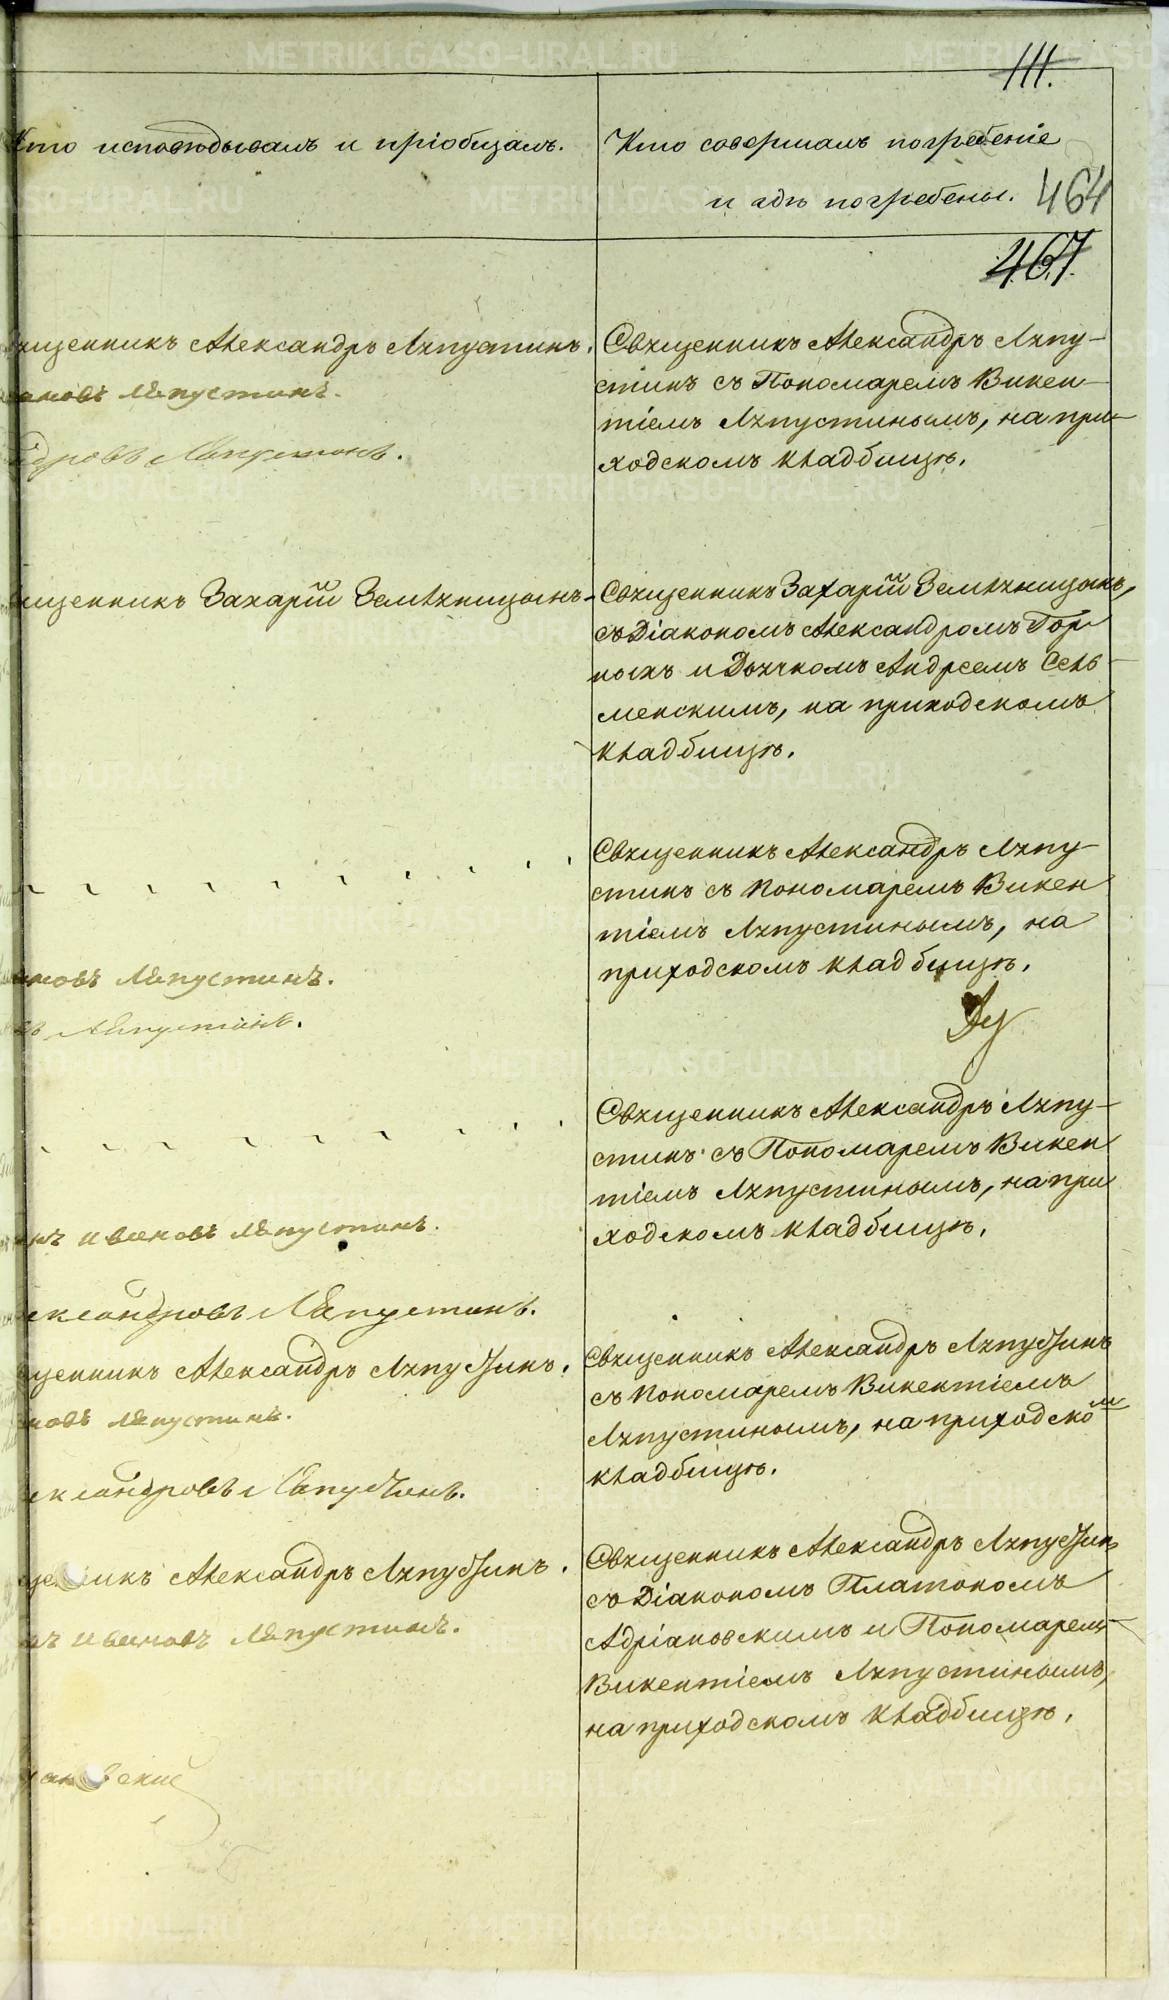 111.
Кто исповѣдывалъ и пріобщалъ.
Кто совершалъ погребеніе
и гдѣ погребены.
464
467.
щенникъ Александръ Ляпустинъ.
Ляпустинъ.
дровъ Ляпустинъ.
Священникъ Александръ Ляпу-
стинъ съ Пономаремъ Викен-
тіемъ Ляпустинымъ, на при-
ходскомъ кладбищѣ.
щенникъ Захарій Земляницынъ.
Священникъ Захарій Земляницынъ,
съ Діакономъ Александромъ Гор
ныхъ и Дьячкомъ Андреемъ Сель-
менскимъ, на приходскомъ
кладбищѣ.
Священникъ Александръ Ляпу-
стинъ съ Пономаремъ Викен
тіемъ Ляпустинымъ, на
приходскомъ кладбищѣ.
Ляпустинъ.
Ляпустинъ.
Священникъ Александръ Ляпу-
стинъ съ Пономаремъ Викен
тіемъ Ляпустинымъ, на при
ходскомъ кладбищѣ.
Ивановъ Ляпустинъ.
ександровъ Ляпустинъ.
щенникъ Александръ Ляпустинъ.
новъ Ляпустинъ.
ександровъ Ляпустинъ.
Священникъ Александръ Ляпустинъ
съ Пономаремъ Викентіемъ
Ляпустинымъ, на приходском
кладбищѣ.
никъ Александръ Ляпустинъ.
Ивановъ Ляпустинъ.
Священникъ Александръ Ляпустинъ
съ Діакономъ Платономъ
Адріановскимъ и Пономаремъ
Викентіемъ Ляпустинымъ,
на приходскомъ кладбищѣ.
METRIKI.GASO-URAL.RU